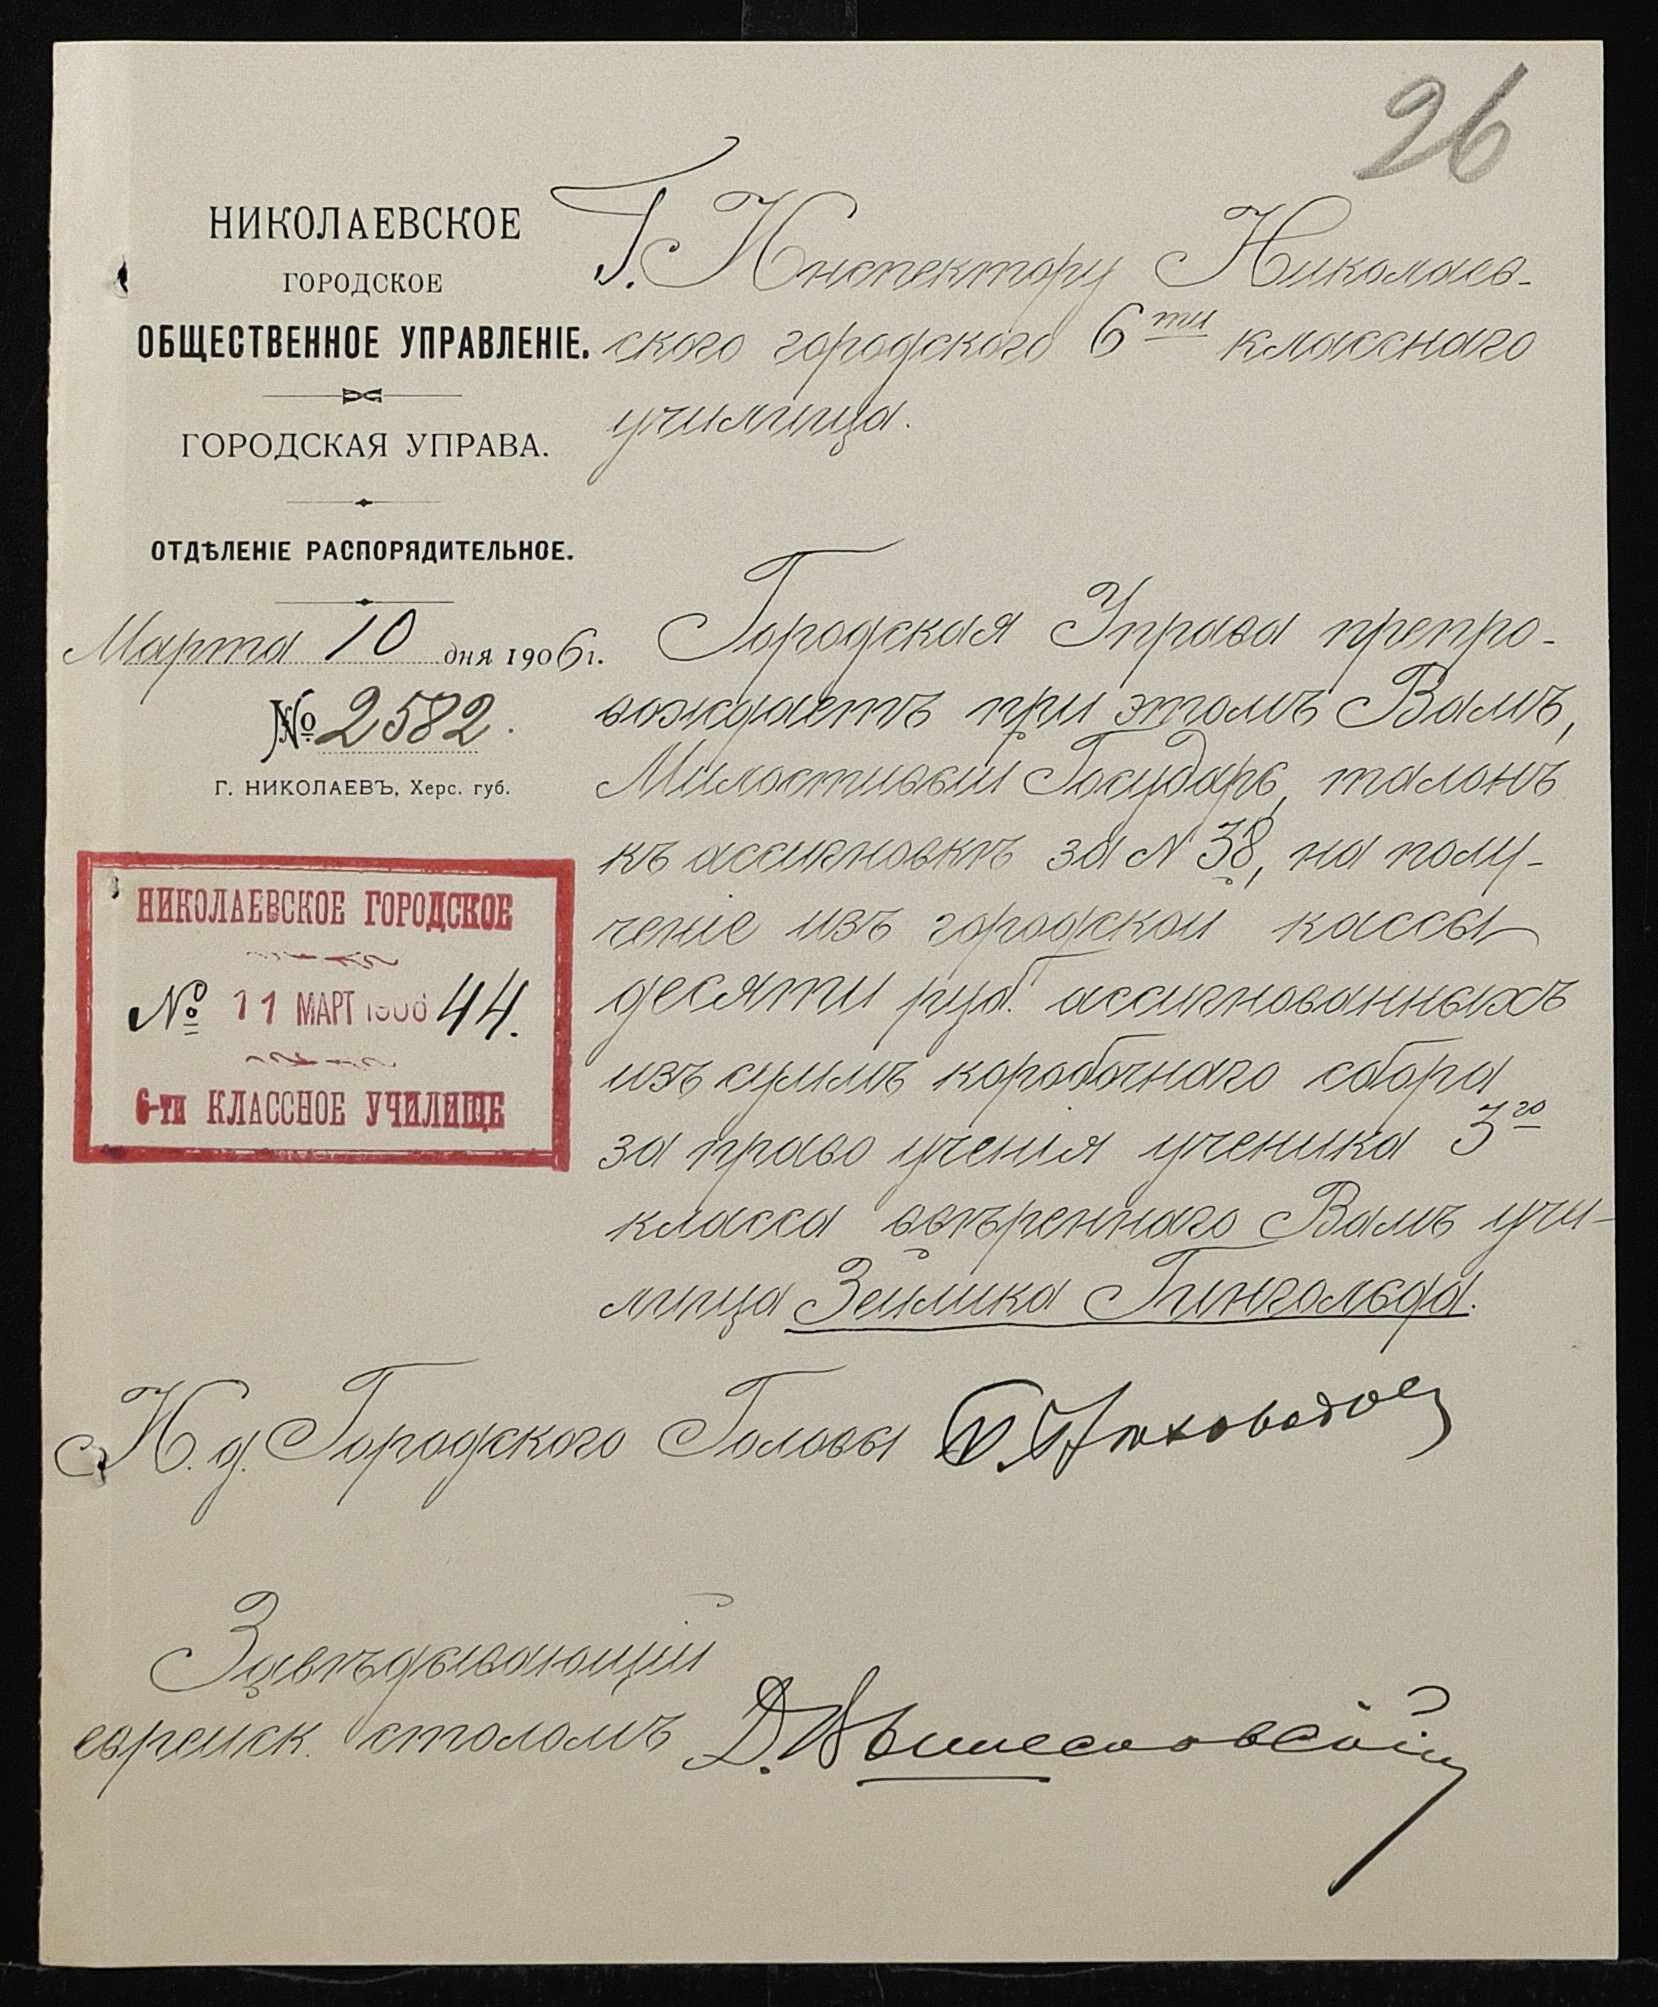 26
НИКОЛАЕВСКОЕ
ГОРОДСКОЕ
ОБЩЕСТВЕННОЕ УПРАВЛЕНІЕ.
ГОРОДСКАЯ УПРАВА.
ОТДѢЛЕНІЕ РАСПОРЯДИТЕЛЬНОЕ.
Марта 10 дня 1906 г.
№ 2582.
Г. НИКОЛАЕВЪ, Херс. губ.
НИКОЛАЕВСКОЕ ГОРОДСКОЕ
№ 11 МАРТ 1906 44.
6-ти КЛАССНОЕ УЧИЛИЩЕ
Г. Инспектору Николаев-
ского городского 6ти класснаго
училища.
Городская Управа препро-
вождаетъ при этомъ Вамъ,
Милостивый Государь, талонъ
къ ассигновкѣ за N 38, на полу-
ченіе изъ городской кассы
десяти руб. ассигнованныхъ
изъ суммъ коробочнаго сбора
за право ученія ученика 3го
класса ввѣреннаго Вамъ учи-
лища Зейлика Гингольда.
И. д. Городского Головы
Завѣдывающій
еврейск. столомъ Д.